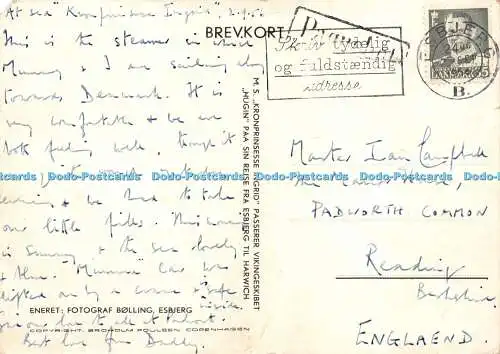 At sea "Kronprinsesse Ingrid" 2.9.5
This is the steamer in which
Mummy & I are sailing
towards Denmark. It is
very comfortable & we are
both feeling well, though it
& we had to take
our little pills. This morning
is sunny & the sea lovely
& blue. Mummie's car was
lifted on by a crane & safe
inside.
Best love from Daddy.
ENERET: FOTOGRAF BØLLING, ESBJERG
COPYRIGHT: BROHOLM POULSEN COPENHAGEN
M. S. „KRONPRINSESSE INGRID" PASSERER VIKINGESKIBET
„HUGIN" PAA SIN REJSE FRA ESBJERG TIL HARWICH
BREVKORT
Paquebot
Skriv tydelig
og fuldstændig
adresse
ESBJERG
B.
DANMARK
Master Ian Campbell
PADWORTH COMMON
Reading
Berkshire
ENGLAEND.
Dodo-Postcards Dodo-Postcards Dodo-Postcards Dodo-Postcards Dodo-Postcards Dodo-Postcards